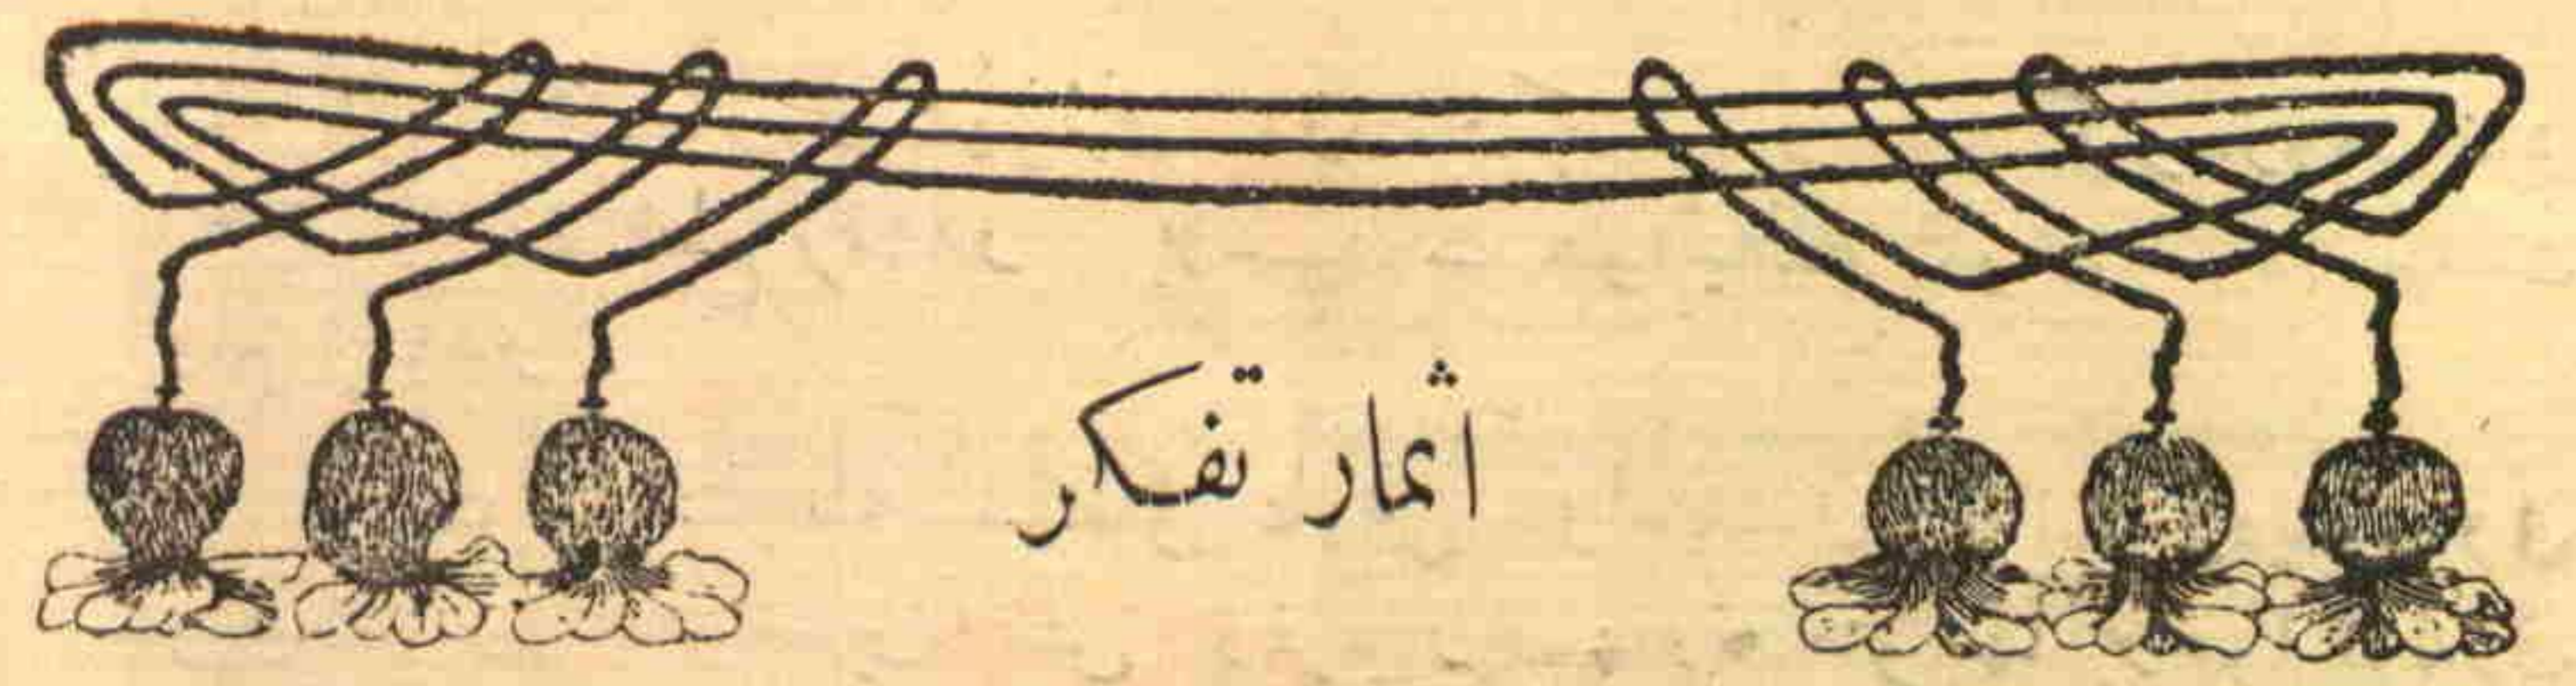 اثمار تفكر